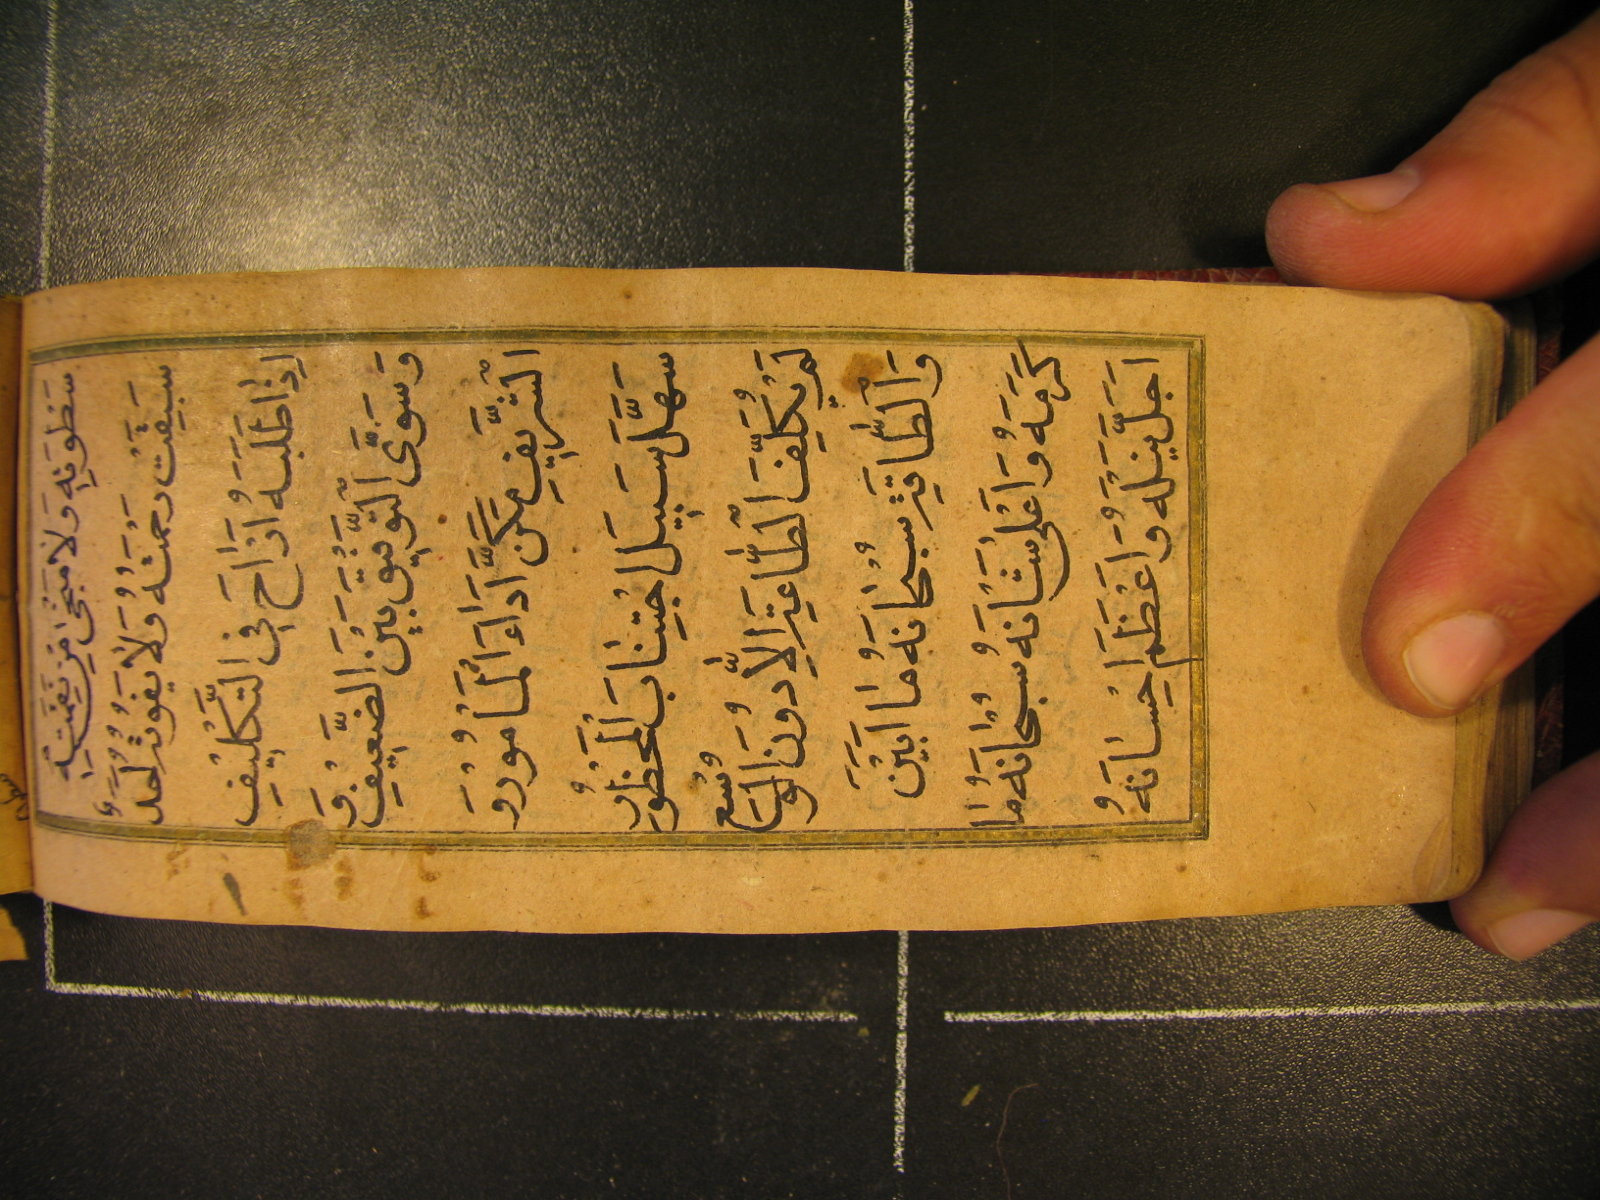 سَطْوَتِهِ وَلَا مَنْجٰى مِنْ نَقِمَتِهِ
سَبَقَتْ رَحْمَتُهُ وَلَا يَفُوتُهُ اَحَدٌ
اِذَا طَلَبَهُ اَزَاحَ فِي التَّكْلِيفِ
وَسَوَّى التَّوْفِيقَ بَيْنَ الضَّعِيفِ وَ
الشَّرِيفِ مَكَّنَ اَدَاءَ الْمَأْمُورِ وَ
سَهَّلَ سَبِيلَ اجْتِنَابِ الْمَحْظُورِ
لَمْ يُكَلِّفِ الطَّاعَةَ اِلَّا دُونَ الْوُسْعِ
وَالطَّاقَةِ سُبْحَانَهُ مَا اَبْيَنَ
كَرَمَهُ وَاَعْلٰى شَانَهُ سُبْحَانَهُ مَا
اَجَلَّ نَيْلَهُ وَاَعْظَمَ اِحْسَانَهُ